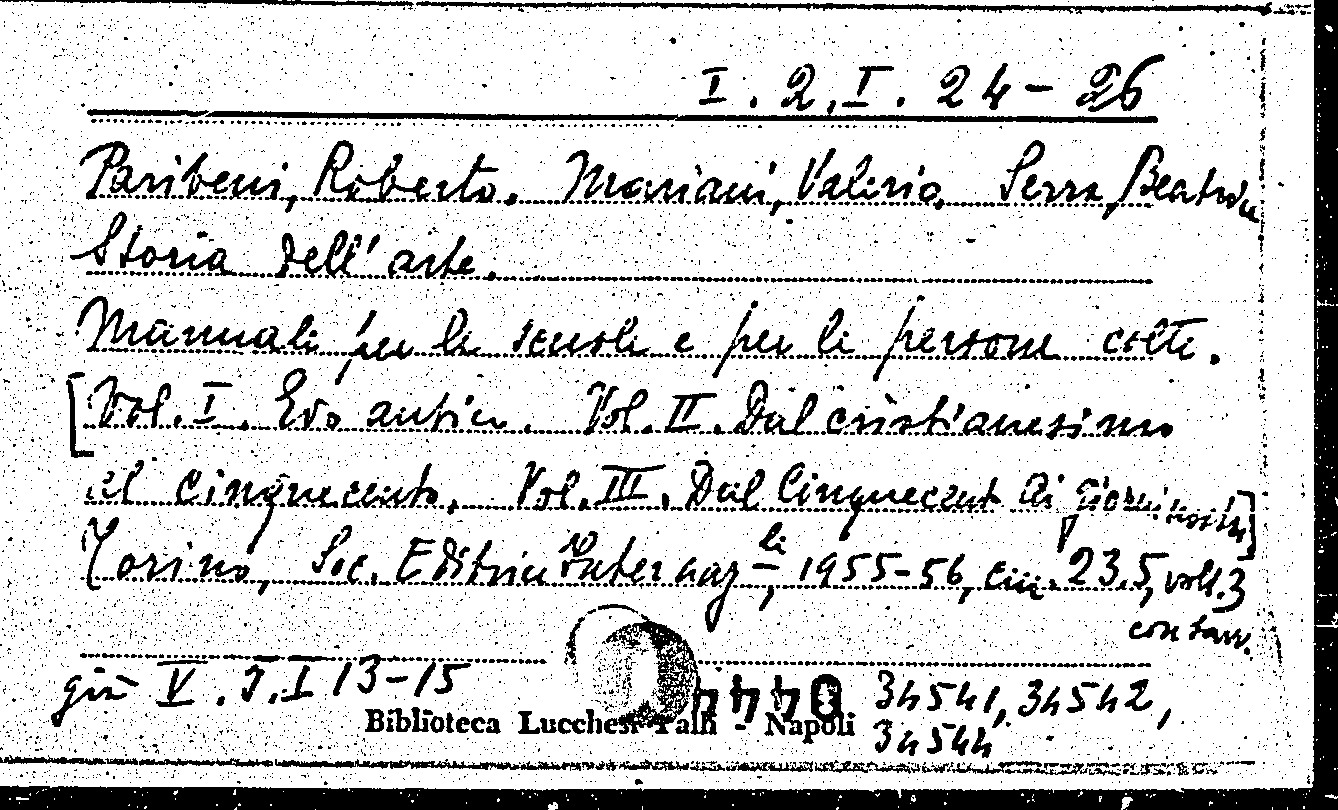 I. 2. I. 24-26
Paribeni, Roberto. Mariani, Valerio. Serra, Beatrice
Storia dell'arte.
Manuale per le scuole e per le persone colte.
[Vol. I. Evo antico. Vol. II. Dal cristianesimo
al cinquecento. Vol. III. Dal Cinquecento ai giorni nostri]
Torino, Soc. Editrice Internaz.le, 1955-56, cm. 23.5, voll. 3
con tavv.
già V. I. I 13-15
0444
34541, 34542,
34544
Biblioteca Lucchesi Palli - Napoli